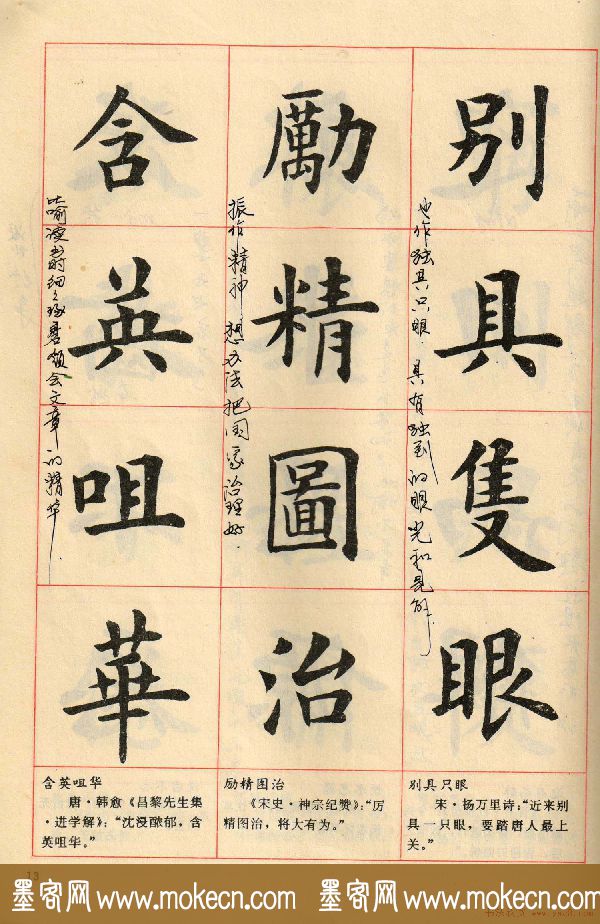 別具隻眼
也作独具只眼.具有独到的眼光和见解.
勵精圖治
振作精神,想办法把国家治理好.
含英咀華
比喻读书时细细琢磨领会文章的精华.
别具只眼
宋·杨万里诗:“近来别
具一只眼,要踏唐人最上
关。”
励精图治
《宋史·神宗纪赞》:“厉
精图治,将大有为。”
含英咀华
唐·韩愈《昌黎先生集
·进学解》:“沈浸醲郁,含
英咀华。”
13
墨客网 www.mokecn.com 墨客网 www.mokecn.com